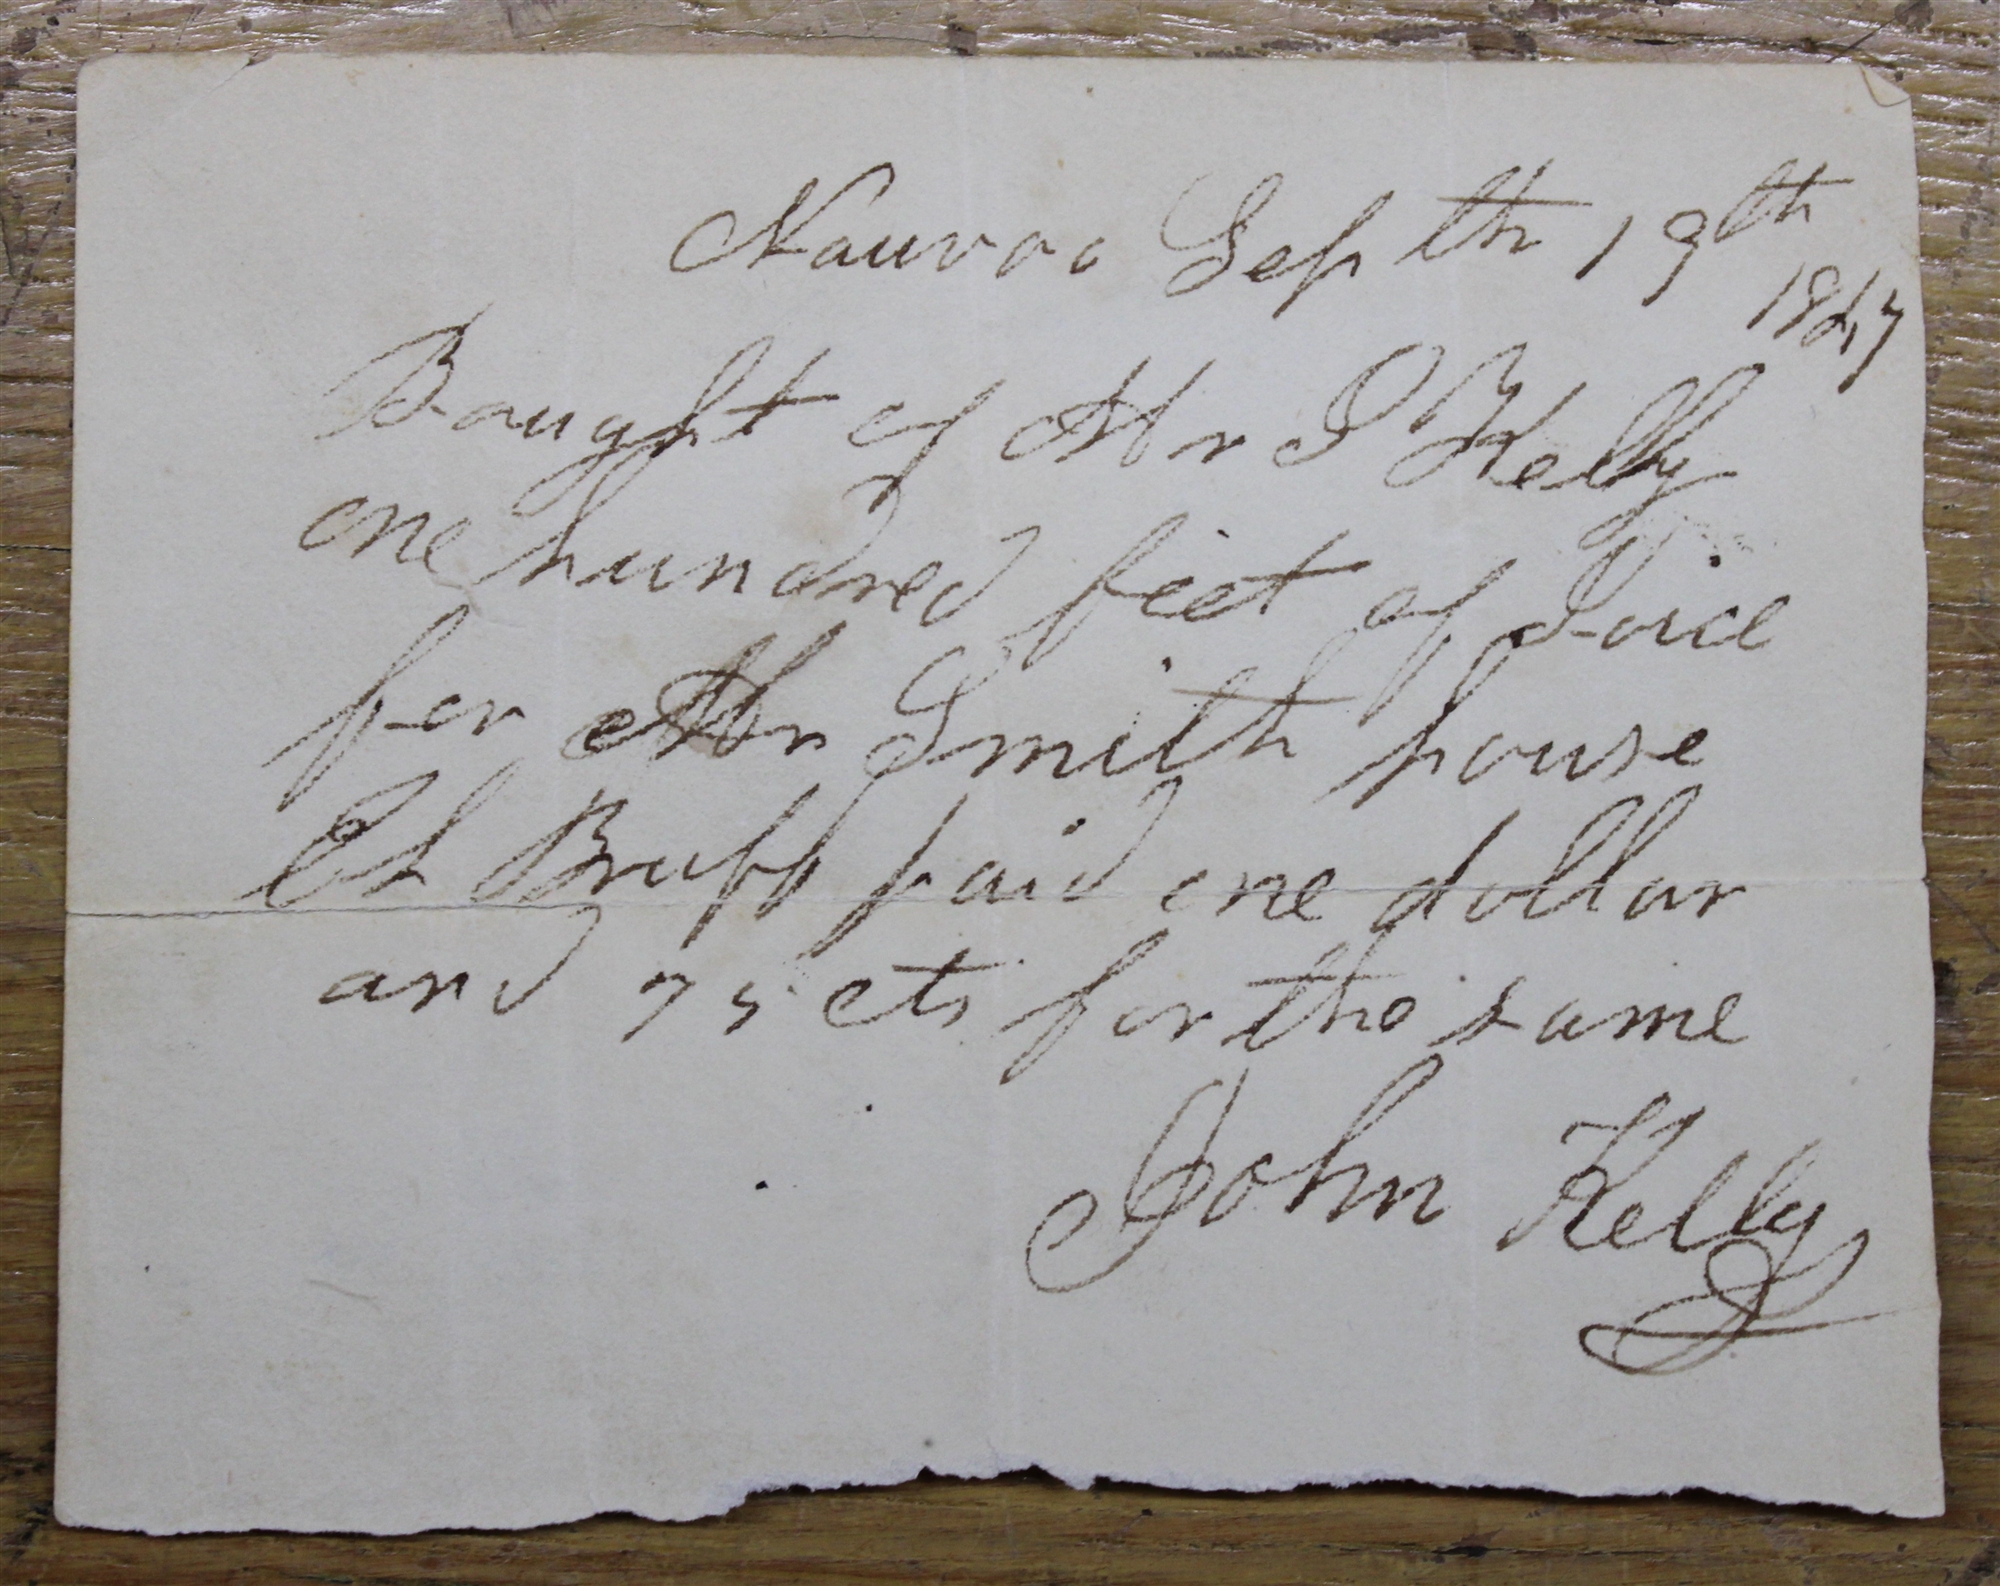 Nauvoo Septh 19th
1847
Bought of Mr J Kelly
one hundred feet of Joice
for Mr Smith house
Bruff paid one dollar
and 75 cts for the same
John Kelly